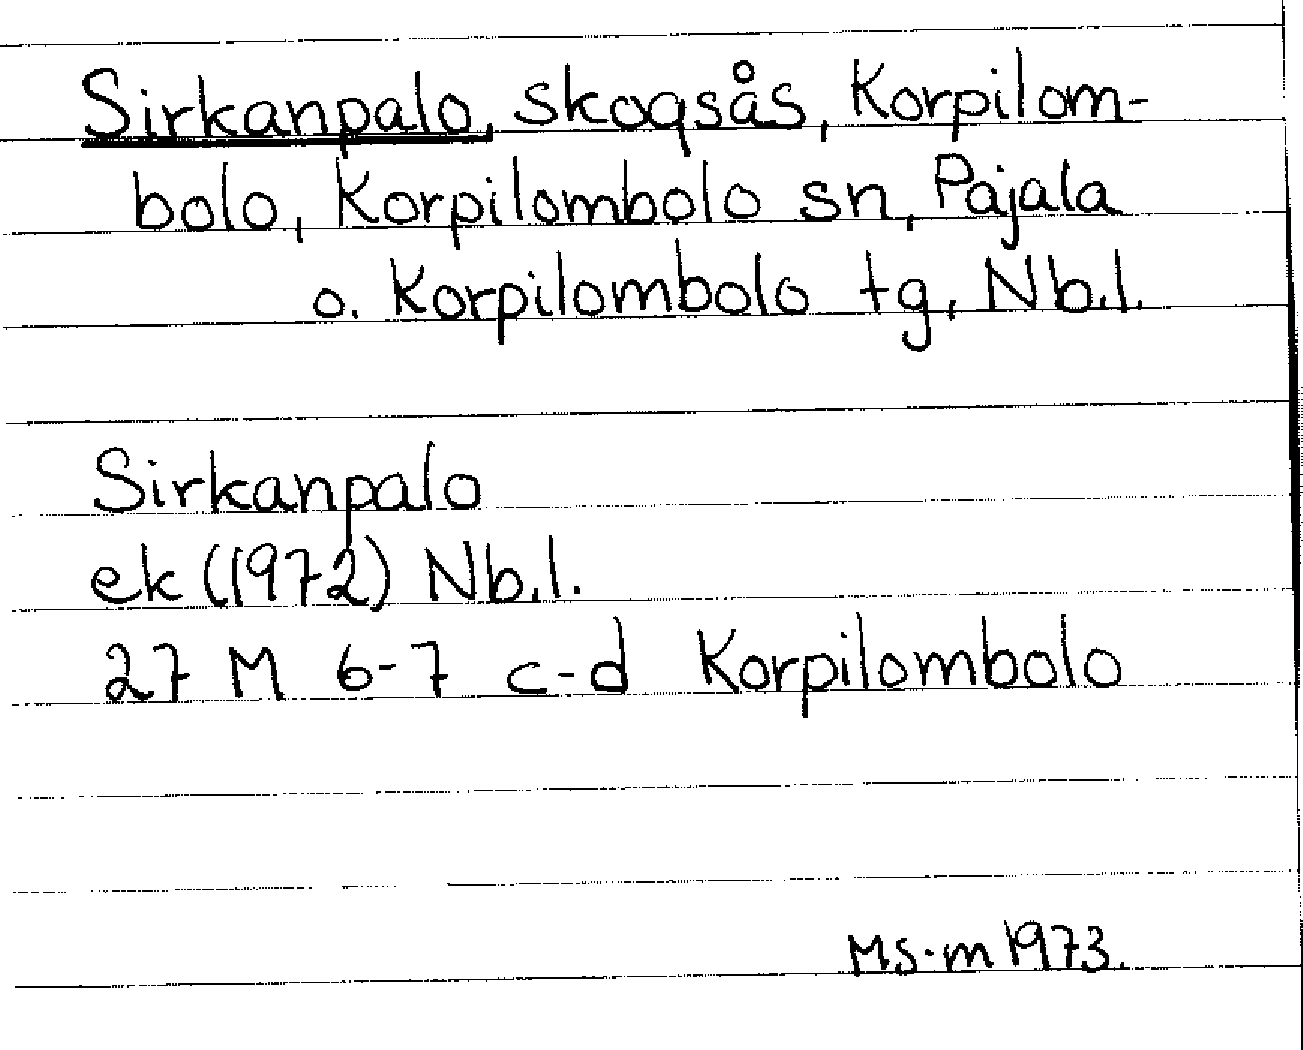 Sirkanpalo, skogsås, Korpilom-
bolo, Korpilombolo sn, Pajala
o. Korpilombolo tg, Nb.l.
Sirkanpalo
ek (1972) Nb.l.
27 M 6-7 c-d Korpilombolo
MS-m 1973.